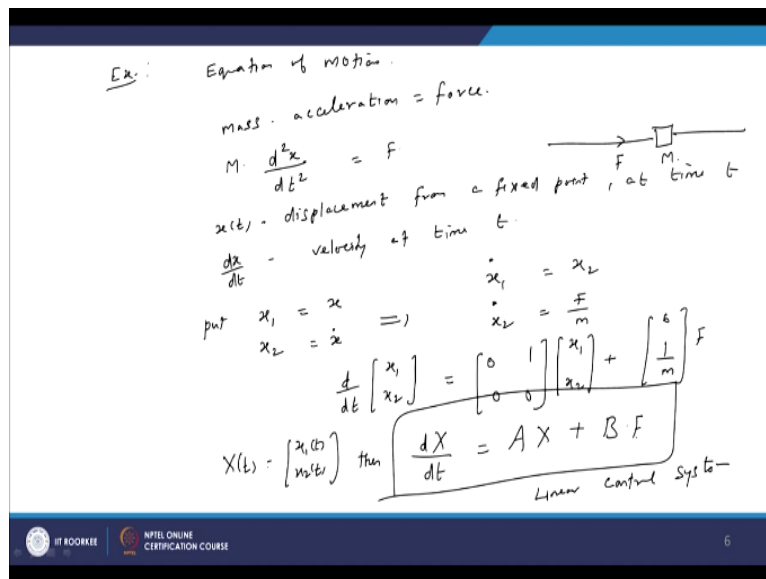 Ex.: Equation of motion.
mass . acceleration = force.
M. d²x/dt² = F
F M.
x(t) - displacement from a fixed point, at time t
dx/dt - velocity at time t.
put x₁ = x => ẋ₁ = x₂
x₂ = ẋ ẋ₂ = F/m
d/dt [x₁ x₂] = [0 1 0 0] [x₁ x₂] + [0 1/m] F
X(t) = [x₁(t) x₂(t)] then dX/dt = AX + B.F
Linear control system
IIT ROORKEE NPTEL ONLINE
CERTIFICATION COURSE
6